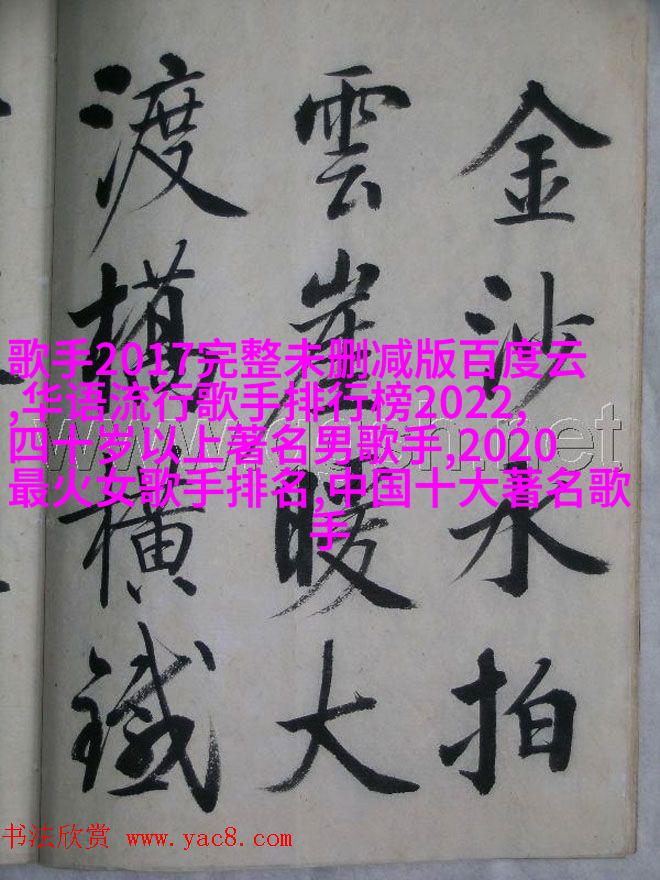 金沙水拍
雲崖暖大
渡橋橫鐵
歌手2017完整未删减版百度云
,华语流行歌手排行榜2022,
四十岁以上著名男歌手,2020
最火女歌手排名,中国十大著名歌
手
书法欣赏 www.yac8.com